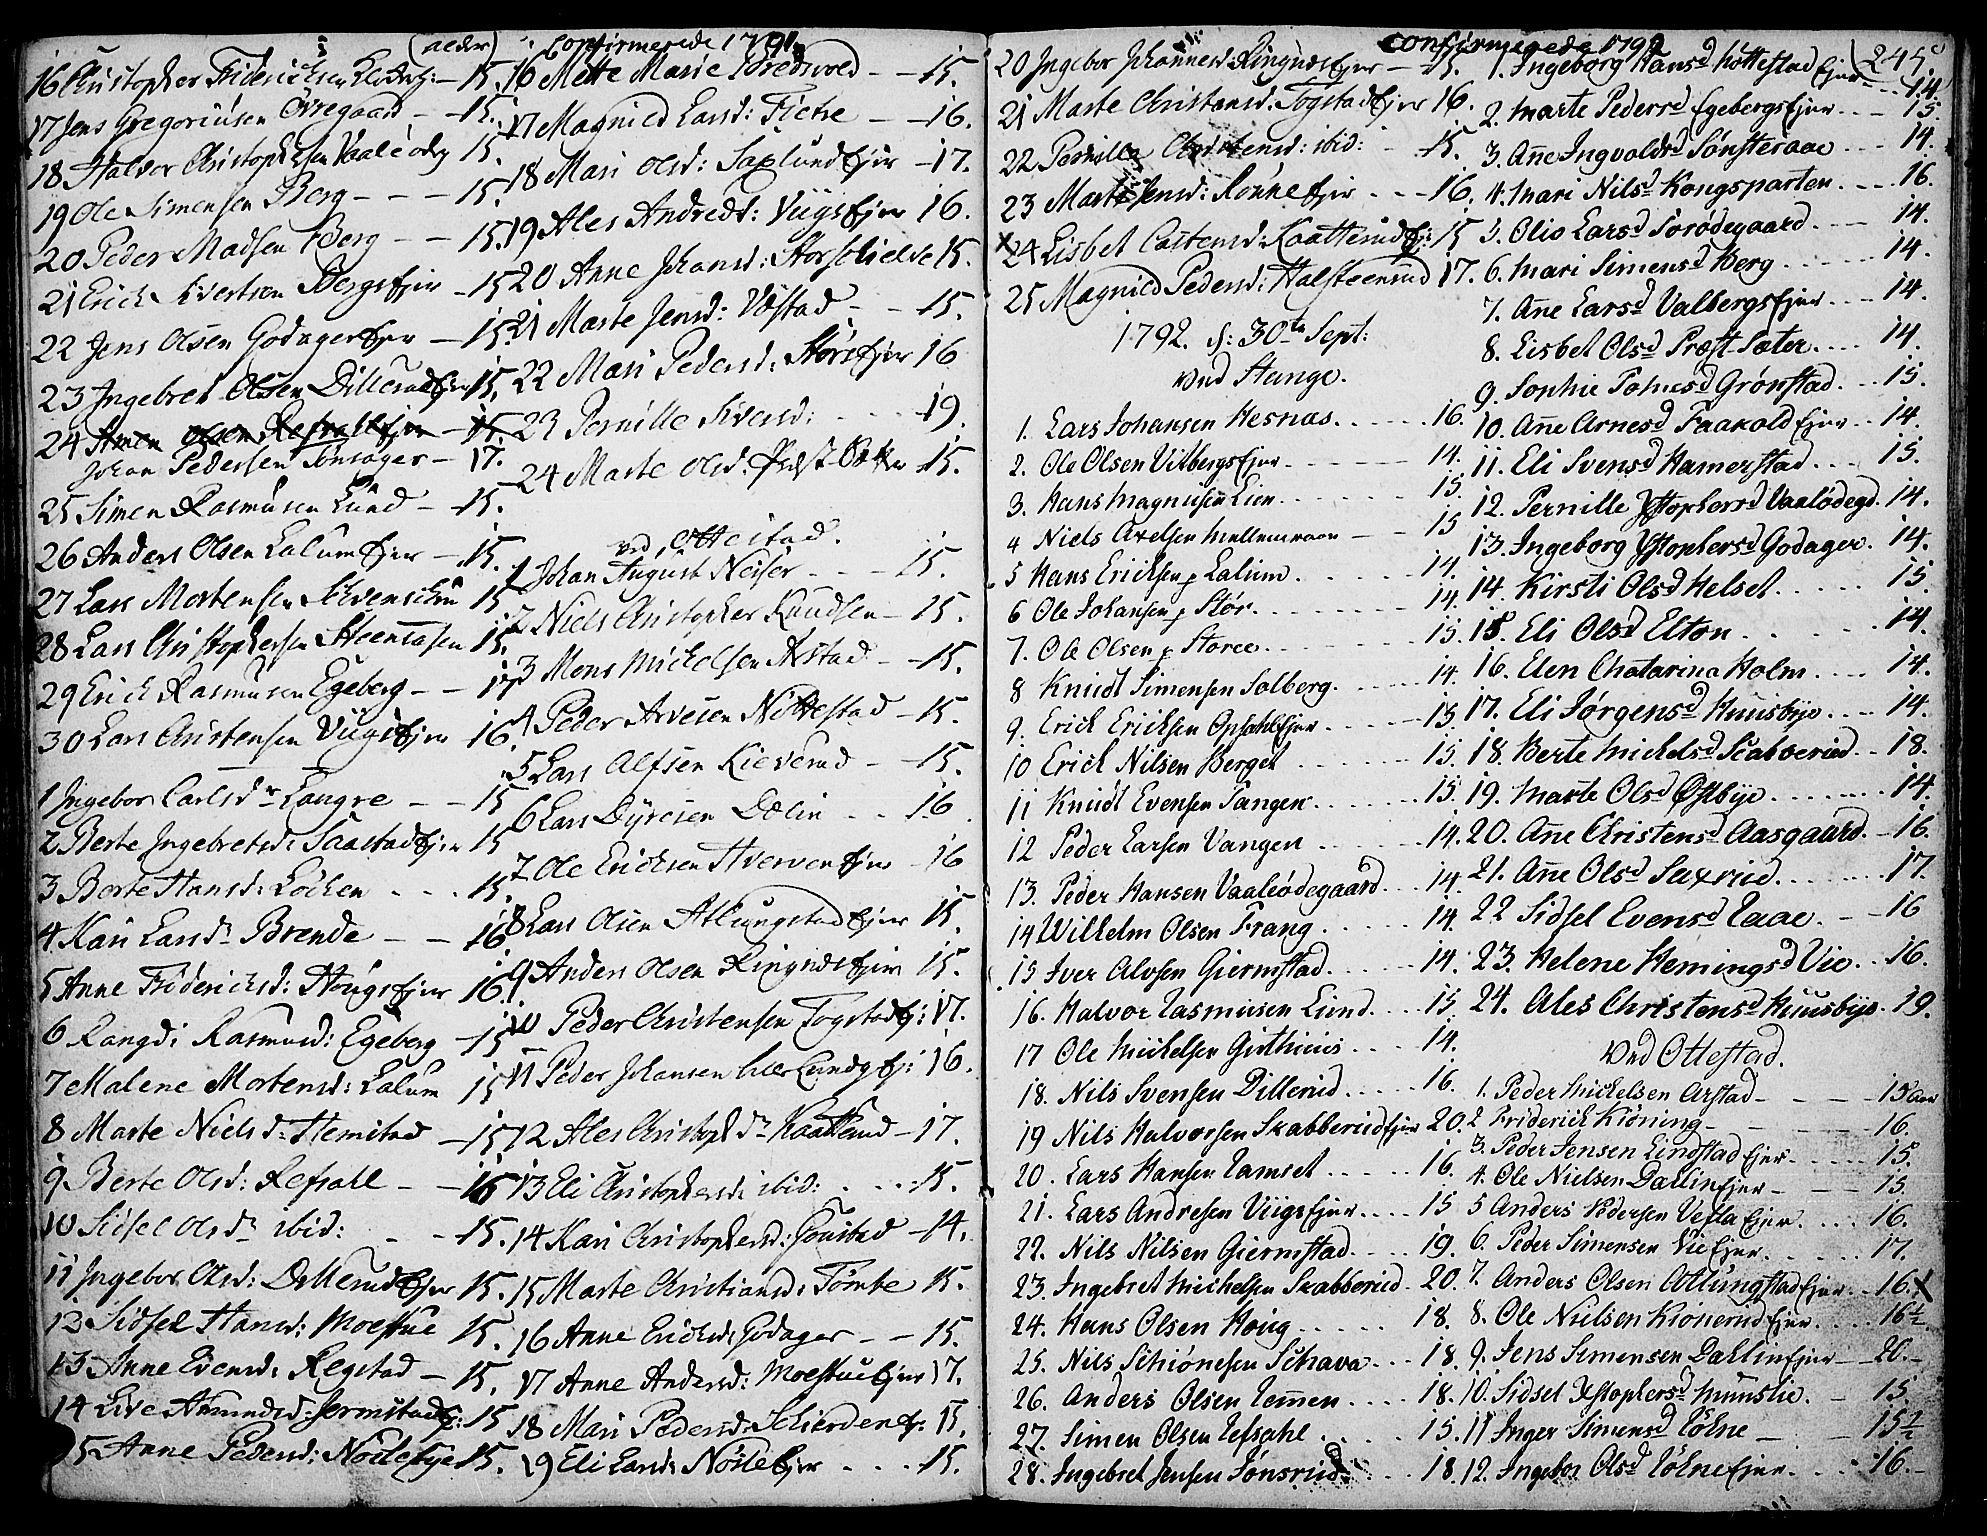 (alder)
Confirmerede 1791
16 Christopher Friderichsen – 15.
17 Jens Gregoriusen Øvregaard – 15.
18 Halvor Christophersen Vaaleødeg 15.
19 Ole Simensen Berg – – – 15.
20 Peder Madsen Berg – – 15.
21 Erich Sivertsen Bergsejer – 15
22 Jens Olsen Godagerejer – 15
23 Ingebret Olsen Dillerudejer 15.
24 Amen Olsen Refsallejer – 15.
Johan Pedersen Sonsager – 17.
25 Simen Rasmusen Lund – 15.
26 Anders Olsen Lalumejer – 15.
27 Lars Mortensen 15
28 Lars Christophersen Steenaasen 15.
29 Erich Rasmusen Egeberg – – 17
30 Lars Christensen Viigsejer 16.
1 Ingebor Carlsdr Langre – – 15
2 Berte Ingebretsd: Saastadejer 15
3 Berte Hansd: Løcken – – – 15.
4 Kari Larsdr Brende – – 16
5 Anne Friderichsd: Hougsejer 16.
6 Rangdi Rasmusd: Egeberg – 15
7 Malene Mortensd: Lalum 15
8 Marte Nielsdr Hemstad – 15
9 Berte Olsd: Refsall – – 16
10 Sidsel Olsdr ibid: – – 15.
11 Ingebor Olsd: Dillerudejer 15.
12 Sidsel Hansd: Moestue 15.
13 Anne Evensd: Regstad – 15.
14 Live Amundsd: Jermstadej: 15
15 Anne Pedersd: Nordebye 15.
16 Mette Marie Bredvold – – 15.
17 Magnild Larsd: Fietre – – 16.
18 Mari Olsd: Saxlundejer – 17.
19 Ales Andresd: Viigsejer 16.
20 Anne Johansd: 15.
21 Marte Jensd: Vestad – – 15.
22 Mari Pedersd: Størsejer 16
23 Pernille Siversd: – – – 19.
24 Marte Olsd: Præst Sæter 15.
ved Ottestad.
1 Johan August Neiser – – – 15.
2 Niels Christopher Knudsen – 15.
3 Mons Michelsen Arstad – – 15.
4 Peder Arvesen Nøttestad – 15.
5 Lars Alfsen Kieverud – – 15.
6 Lars Dyresen Dælin – – 16
7 Ole Erichsen Hvervenejer – 16
8 Lars Olsen Atlungstadejer 15.
9 Anders Olsen Ringnesejer 15.
10 Peder Christensen Togstadej: 17.
11 Peder Johansen Lundgej: 16.
12 Ales Christophdr Kaatterud – 17.
13 Eli Christophersd: ibid: – – – 15.
14 Kari Christophersd: Goustad – 14.
15 Marte Christiansd: Tømte 15.
16 Anne Erichsd: Godager – – 15.
17 Anne Andersd: Moestueejer 17.
18 Mari Pedersdr Schierdenej: 15.
19 Eli Larsd: Nordeejer – – – 15.
Confirmerede 1792
245.
20 Ingebor Johannesd: Ringnesejer – 15.
21 Marte Christensd: Togstadejer 16.
22 Pernille Christensd: ibid: – 15.
23 Marte Jensd: Rønneejer – – – 16.
x 24 Lisbet Castensd: Kaatterudej: 15
25 Magnild Pedersd: Halsteensrud 17.
1792. d: 30te Sept:
Ved Stange.
1. Lars Johansen Hesnas. . . . . . 16.
2. Ole Olsen Vilbergsejer – – – – 14.
3. Hans Magnusen Lien . . . . . . 15.
4 Niels Axelsen Mellumvaar – – 15
5 Hans Erichsen p Lalum. . . . . . 14.
6 Ole Johansen p Stør. . . . . . . . 14.
7. Ole Olsen p Storee . . . . . . . . 15.
8 Knudt Simensen Solberg. . . . . . 14.
9. Erich Erichsen Opsahlejer. . . . . 15
10 Erich Nilsen Berget . . . . . . 15.
11 Knudt Evensen Tangen. . . . . . . 15.
12 Peder Larsen Vangen . . . . . . 14.
13. Peder Hansen Vaaleødegaard. . . 14.
14 Willhelm Olsen Frang. . . . . . 14.
15 Iver Alvsen Giermstad. . . . . . 14.
16. Halvor Rasmusen Lund. . . . . 15
17 Ole Michelsen Guthuus. . . . . 14.
18. Nils Svensen Dillerud. . . . . 16.
19 Nils Halvorsen Skabberudejer 20.
20. Lars Hansen Ramset . . . . . 16.
21. Lars Andresen Viigsejer. . . . 15
22. Nils Nilsen Giermstad. . . . 19.
23. Ingebret Michelsen Skabberud. 20.
24. Hans Olsen Houg. . . . . . 18.
25. Nils Schiønesen Schava. . . 18.
26. Anders Olsen Remmen. . . . 18.
27. Simen Olsen Refsahl. . . . . 15.
28. Ingebret Jensen Jønsrud. . . 18.
1. Ingeborg Hansd Nøttestad Ejer – – 14
2. Marte Pedersd Egebergsejer. . . 15.
3. Ane Ingvoldsd Sønsteraae . . . 14.
4. Mari Nilsd Kongsparten. . . . 16.
5. Olio Larsd Sorødegaard. . . . 14.
6. Mari Simensd Berg. . . . . . . 14.
7. Ane Larsd Valbergsejer. . . . 14.
8. Lisbet Olsd Præst-Sæter. . . . 14.
9. Sophie Palnesd Grønstad. . . 15.
10. Ane Arnesd Faakoldejer. . 14.
11. Eli Svensd Hamerstad. . . . 15.
12. Pernille Xstophersd Vaalødegd. 14.
13. Ingeborg Xstophersd Godager. 14.
14. Kirsti Olsd Helset. . . . . . 15
15. Eli Olsd Elton. . . . . . . 14.
16. Elen Chatarina Holm. . . . 14.
17. Eli Jørgensd Huusbye. . . . 14.
18. Berte Michelsd Scabberud. . 18.
19. Marte Olsd Østbye. . . . . . . 14.
20. Ane Christensd Aasgaard. – 16.
21. Ane Olsd Saxrud. . . . . . . . 17.
22 Sidsel Evensd Raae. – – 16
23. Helene Hemingsd Vie. . . 16.
24. Ales Christensd Huusbye. . 19.
Ved Ottestad.
1. Peder Michelsen Arstad – – – – 15 aar
2 Friderich Kiøning – – – – – 16.
3. Peder Jensen Lindstad Ejer. . . . . 15.
4. Ole Nielsen Dællinejer – – – – 15.
5 Anders Pedersen Vesla Ejer. . . . 16.
6. Peder Simensen Vie Ejer. . . . . . 17.
7. Anders Olsen Atlungstad Ejer. . . 16. x
8. Ole Nielsen Kiønerud Ejer. . . . . 16½
9. Jens Simensen Dællin Ejer – – 20. –
10. Sidsel Xstophersd Muustie. – – 15
11 Inger Simensd Røhne – – – 15½
12. Ingebor Olsd Røhne Ejer. . . . 16. –